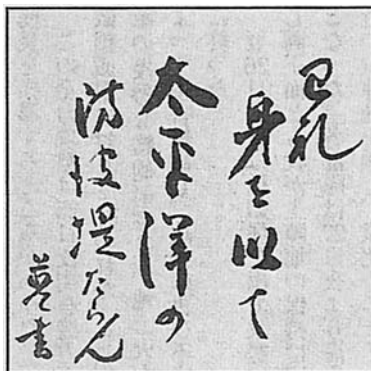 われ
身を以て
太平洋の
防波堤たらん
書